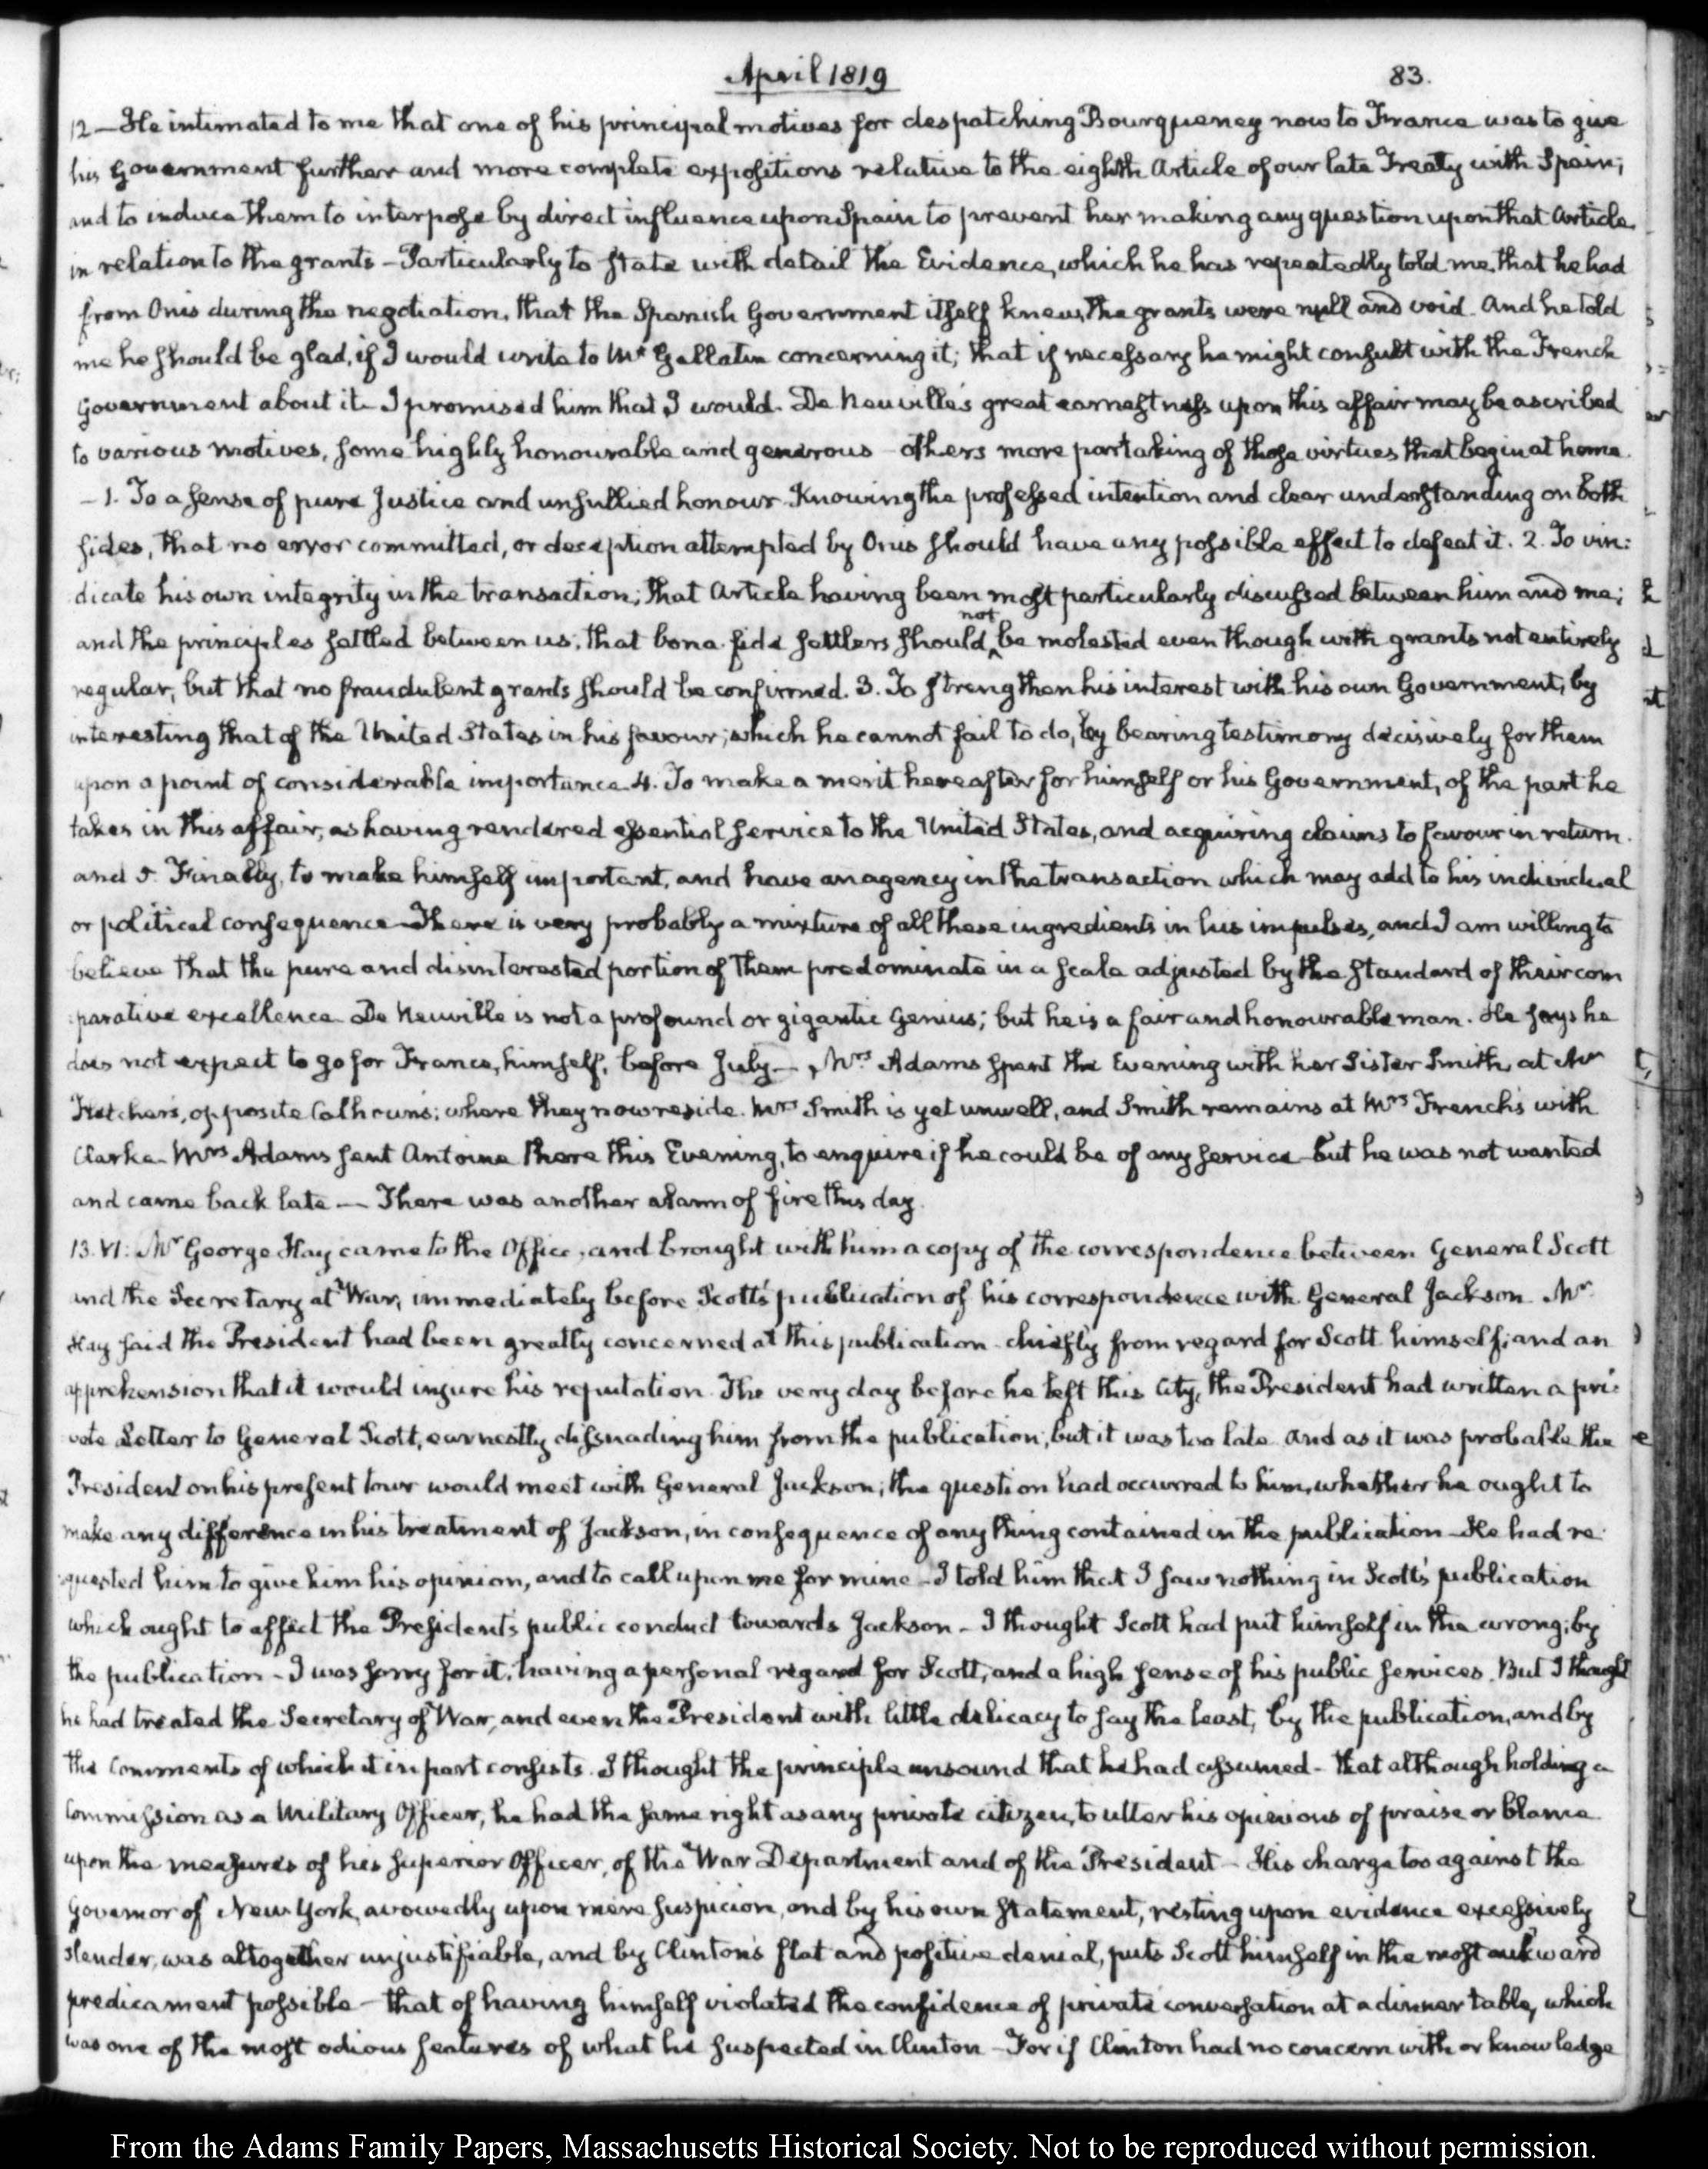 April 1819
83.
12 — He intimated to me that one of his principal motives for despatching Bourqueney now to France was to give
his Government further and more complete expositions relative to the eighth Article of our late Treaty with Spain;
and to induce them to interpose by direct influence upon Spain to prevent her making any question upon that Article
in relation to the grants — Particularly to state with detail the Evidence, which he has repeatedly told me, that he had
from Onis during the negotiation, that the Spanish Government itself knew, the grants were null and void. And he told
me he should be glad, if I would write to Mr Gallatin concerning it; that if necessary he might consult with the French
Government about it. I promised him that I would. De Neuville's great earnestness upon this affair may be ascribed
to various motives, some highly honourable and generous — others more partaking of those virtues that begin at home.
— 1. To a sense of pure Justice and unsullied honour. Knowing the professed intention and clear understanding on both
sides, that no error committed, or deception attempted by Onis should have any possible effect to defeat it. 2. To vin:
dicate his own integrity in the transaction; that Article having been most particularly discussed between him and me;
and the principles settled between us; that bona fide settlers should not be molested even though with grants not entirely
regular, but that no fraudulent grants should be confirmed. 3. To strengthen his interest with his own Government, by
interesting that of the United States in his favour; which he cannot fail to do, by bearing testimony decisively for them
upon a point of considerable importance. 4. To make a merit hereafter for himself or his Government, of the part he
takes in this affair, as having rendered essential service to the United States, and acquiring claims to favour in return.
and 5. Finally, to make himself important, and have an agency in the transaction which may add to his individual
or political consequence — There is very probably a mixture of all these ingredients in his impulses, and I am willing to
believe that the pure and disinterested portion of them predominate in a scale adjusted by the standard of their com
:parative excellence. De Neuville is not a profound or gigantic Genius; but he is a fair and honourable man. He says he
does not expect to go for France, himself, before July — Mrs Adams spent the Evening with her Sister Smith, at Mr
Fletcher's, opposite Calhoun's; where they now reside. Mrs Smith is yet unwell, and Smith remains at Mrs French's with
Clarke. Mrs Adams sent Antoine there this Evening, to enquire if he could be of any service — but he was not wanted
and came back late — There was another alarm of fire this day.
13. VI: Mr George Hay came to the Office, and brought with him a copy of the correspondence between General Scott
and the Secretary at War, immediately before Scott's publication of his correspondence with General Jackson. Mr
Hay said the President had been greatly concerned at this publication — chiefly from regard for Scott himself; and an
apprehension that it would injure his reputation. The very day before he left this City, the President had written a pri:
vate Letter to General Scott, earnestly dissuading him from the publication; but it was too late. And as it was probable the
President on his present tour would meet with General Jackson; the question had occurred to him, whether he ought to
make any difference in his treatment of Jackson, in consequence of any thing contained in the publication — He had re
:quested him to give him his opinion, and to call upon me for mine — I told him that I saw nothing in Scott's publication
which ought to affect the President's public conduct towards Jackson — I thought Scott had put himself in the wrong; by
the publication — I was sorry for it, having a personal regard for Scott, and a high sense of his public services. But I thought
he had treated the Secretary of War, and even the President with little delicacy to say the least, by the publication, and by
the Comments of which it in part consists. I thought the principle unsound that he had assumed — that although holding a
Commission as a Military Officer, he had the same right as any private citizen, to utter his opinions of praise or blame
upon the measures of his superior Officer, of the War Department and of the President — His charge too against the
Governor of New York, avowedly upon mere suspicion, and by his own statement, resting upon evidence excessively
slender, was altogether unjustifiable, and by Clinton's flat and positive denial, puts Scott himself in the most aukward
predicament possible — that of having himself violated the confidence of private conversation at a dinner table, which
was one of the most odious features of what he suspected in Clinton — For if Clinton had no concern with or knowledge
From the Adams Family Papers, Massachusetts Historical Society. Not to be reproduced without permission.